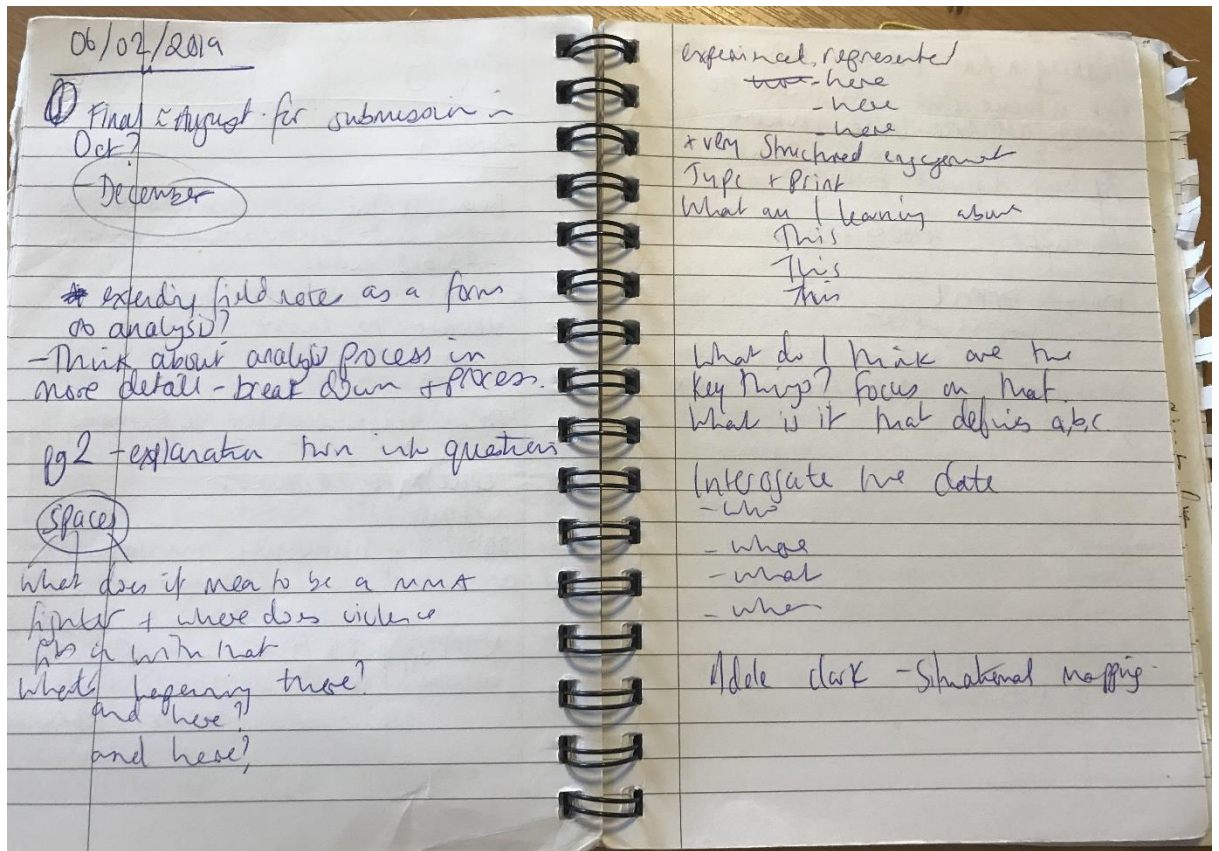 06/02/2019
① Final ≈ August for submission in
Oct?
- December
* extending field notes as a form
of analysis?
- Think about analysis process in
more detail - break down + process.
pg 2 - explanation turn into questions
Spaces
What does it mean to be a MMA
fighter + where does violence
fits in with that
What's happening there?
and here?
and here?
experienced, represented
- here
- here
- here
+ very structured engagement
Type + Print
What am I learning about
This
This
This
What do I think are the
key things? Focus on that.
What is it that defines a,b,c.
Interogate the data
- who
- where
- what
- when
Adele Clark - Situational mapping.